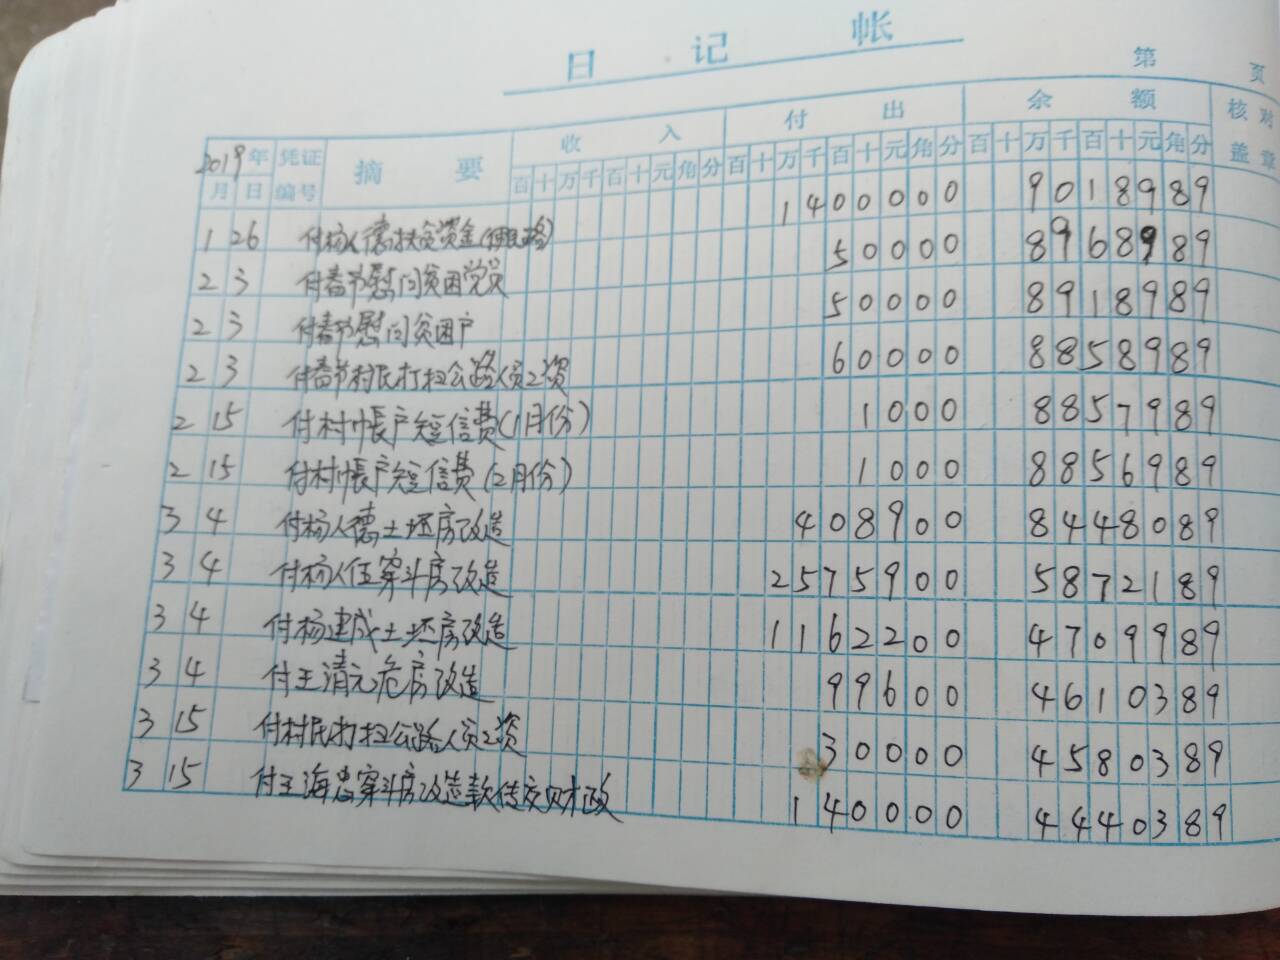 日 记 帐
第 页
2019年 凭证 摘 要 收 入 付 出 余 额 核对
月 日 编号 百 十 万 千 百 十 元 角 分 百 十 万 千 百 十 元 角 分 百 十 万 千 百 十 元 角 分 盖章
1 26 付杨人德扶贫资金 1400000 9018989
2 3 付春节慰问贫困党员 50000 8968989
2 3 付春节慰问贫困户 50000 8918989
2 3 付春节村民打扫公路人员工资 60000 8858989
2 15 付村帐户短信费(1月份) 1000 8857989
2 15 付村帐户短信费(2月份) 1000 8856989
3 4 付杨人德土坯房改造 408900 8448089
3 4 付杨人伍穿斗房改造 2575900 5872189
3 4 付杨建成土坯房改造 1162200 4709989
3 4 付王清元危房改造 99600 4610389
3 15 付村民打扫公路人员工资 30000 4580389
3 15 付王海忠穿斗房改造款转交财政 140000 4440389